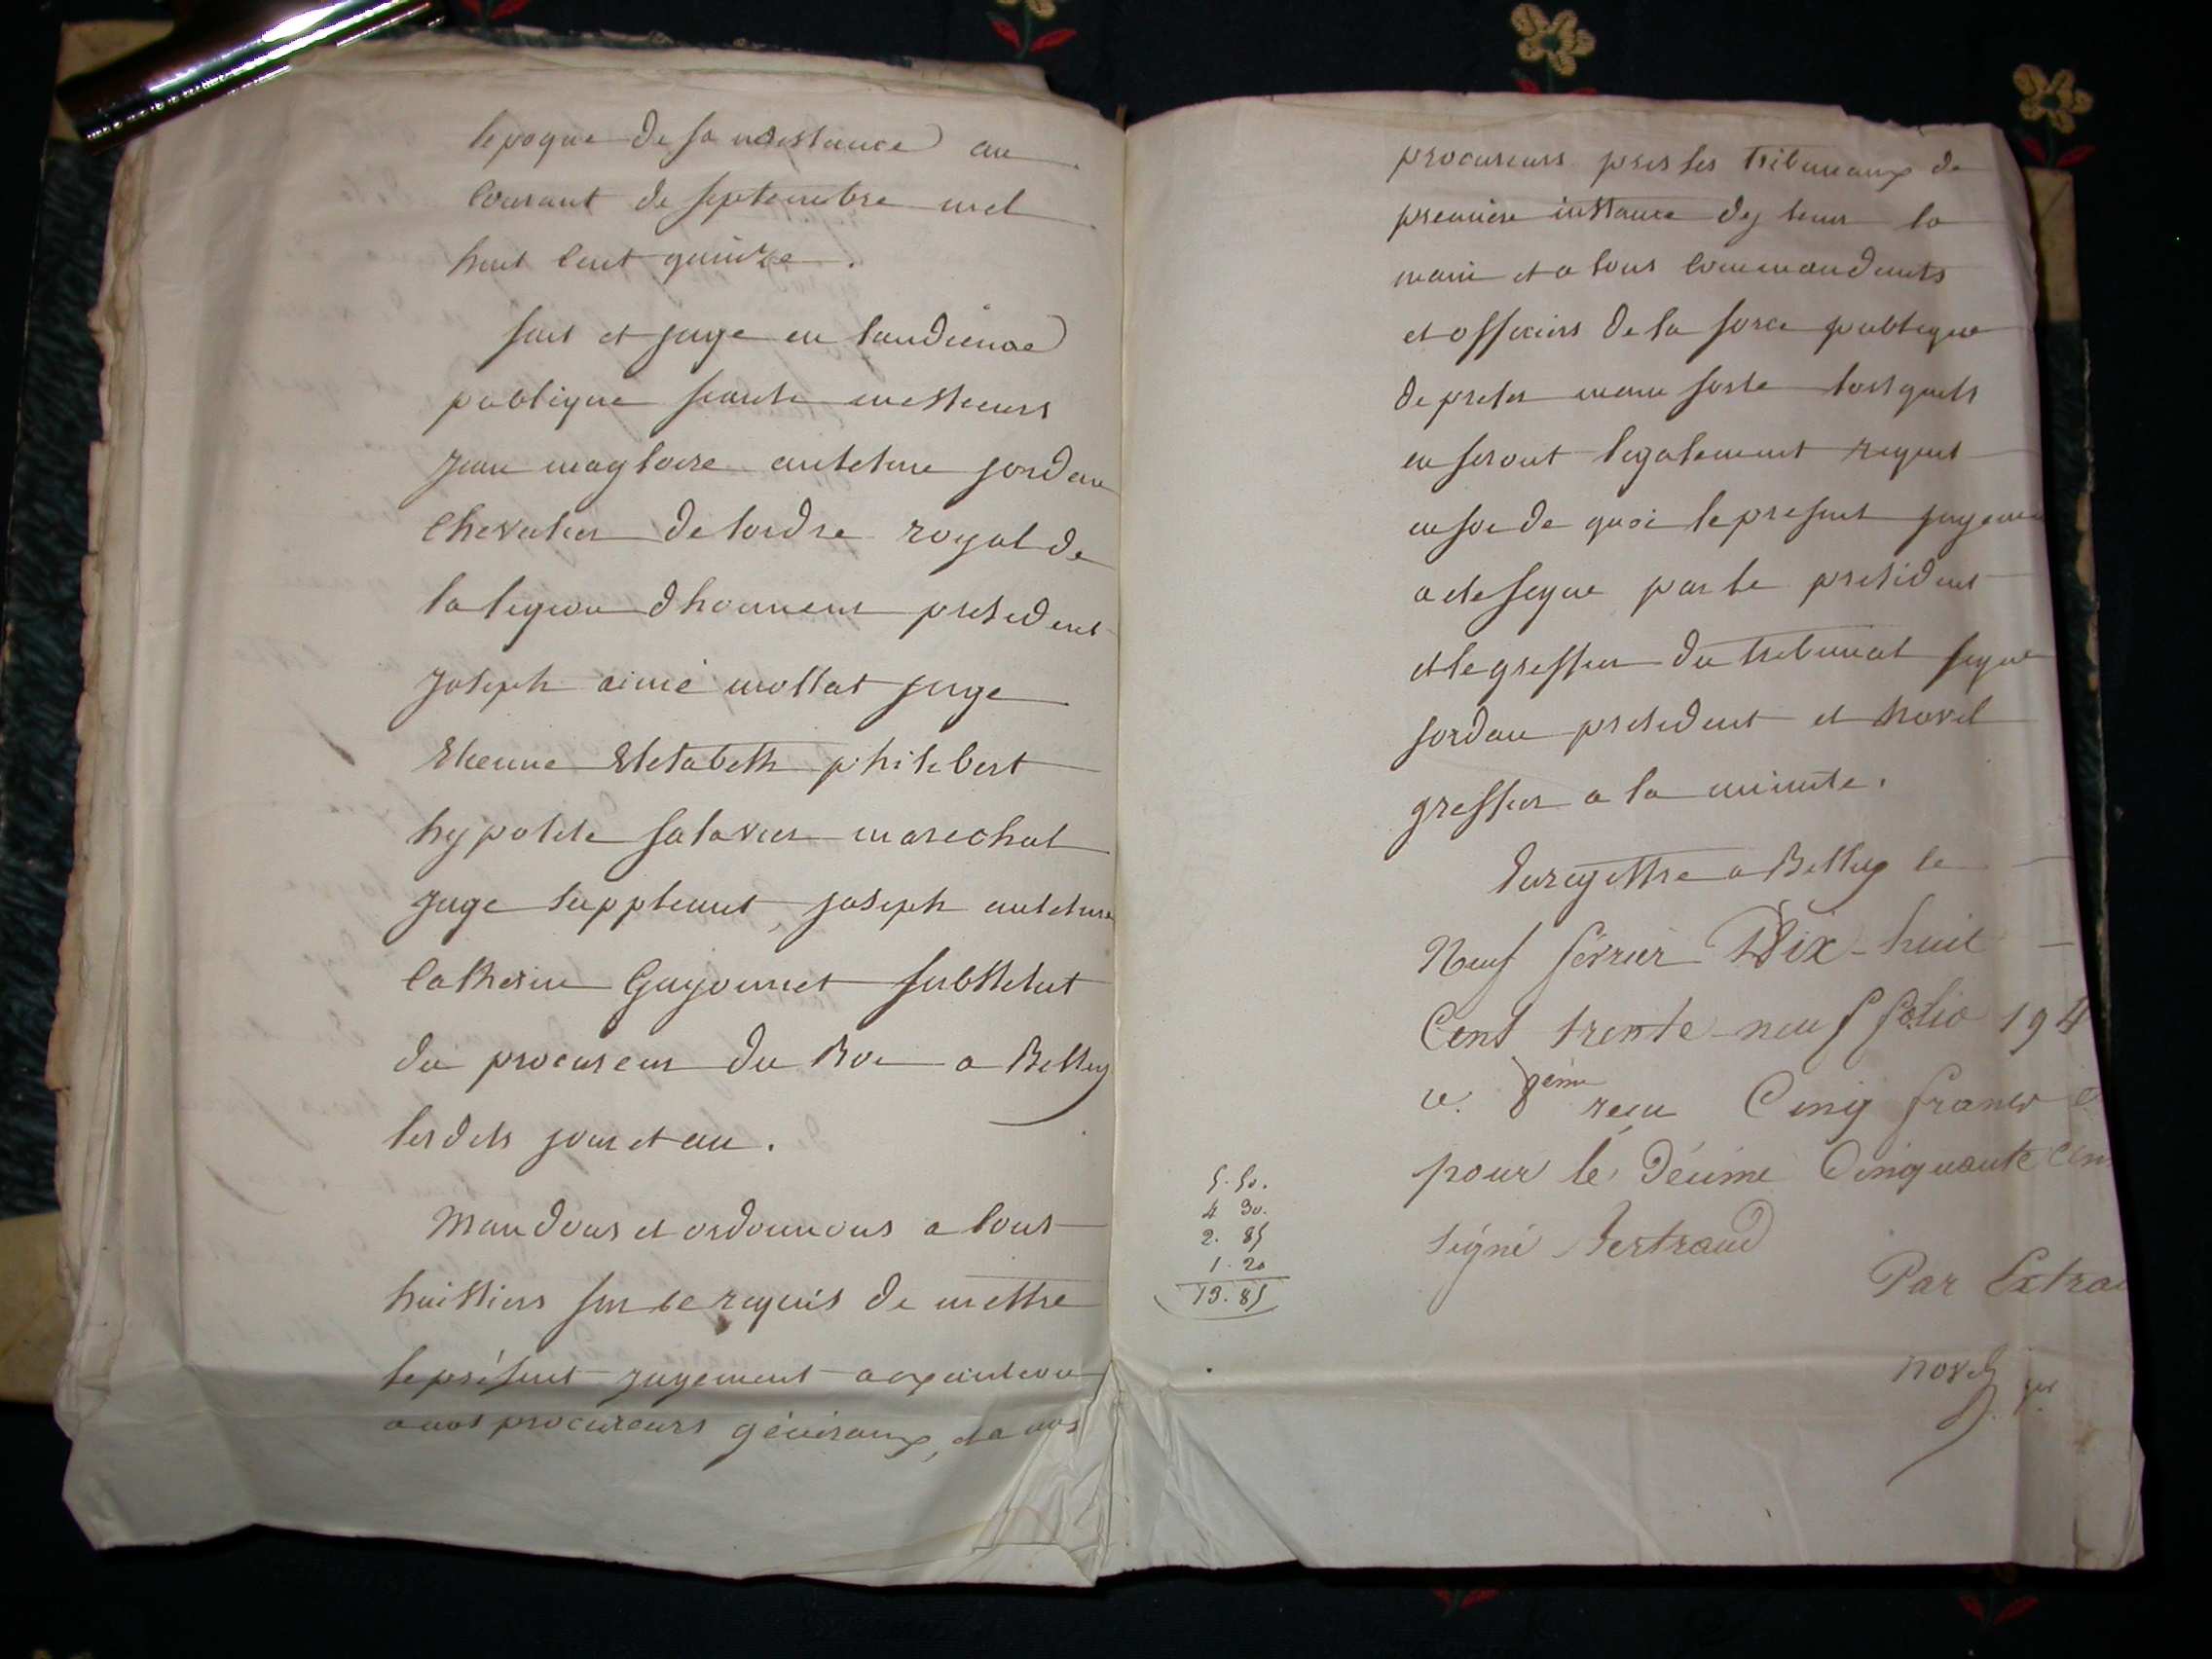 lepoque de sa naissance au
Courant de septembre mil
huit Cent quinze.
fait et juge en laudience
publique seante messieurs
jean magloire antelme jordan
Chevalier delordre royal de
la legion dhonneur president
joseph aimé mollat juge
Etienne Elisabeth philibert
hypolite salavier marechal
juge suppleant, joseph antelme
Catherin Guyonnet substitut
du procureur du Roi a Belley
lesdits jour et an.
Mandons et ordonnons a tous
huissiers sur ce requis de mettre
le présent jugement a exécution
a nos procureurs généraux, et a nos
procureurs pres les tribunaux de
premiere instance dy tenir la
main et a tous Commandants
et officiers de la force publique
de preter main forte lorsquils
en seront legalement requis
en foi de quoi le present jugement
a ete signe par le president
et le greffier du tribunal signe
jordan president et novel
greffier a la minute.
Enregistre a Belley le
Neuf février Dix-huit
Cent trente-neuf folio 194
c. 8eme recu Cinq francs
pour le Décime Cinquante cen
signé Bertrand
Par Extrai
novel ger.
5.50.
4 30.
2. 85
1. 20
13.85